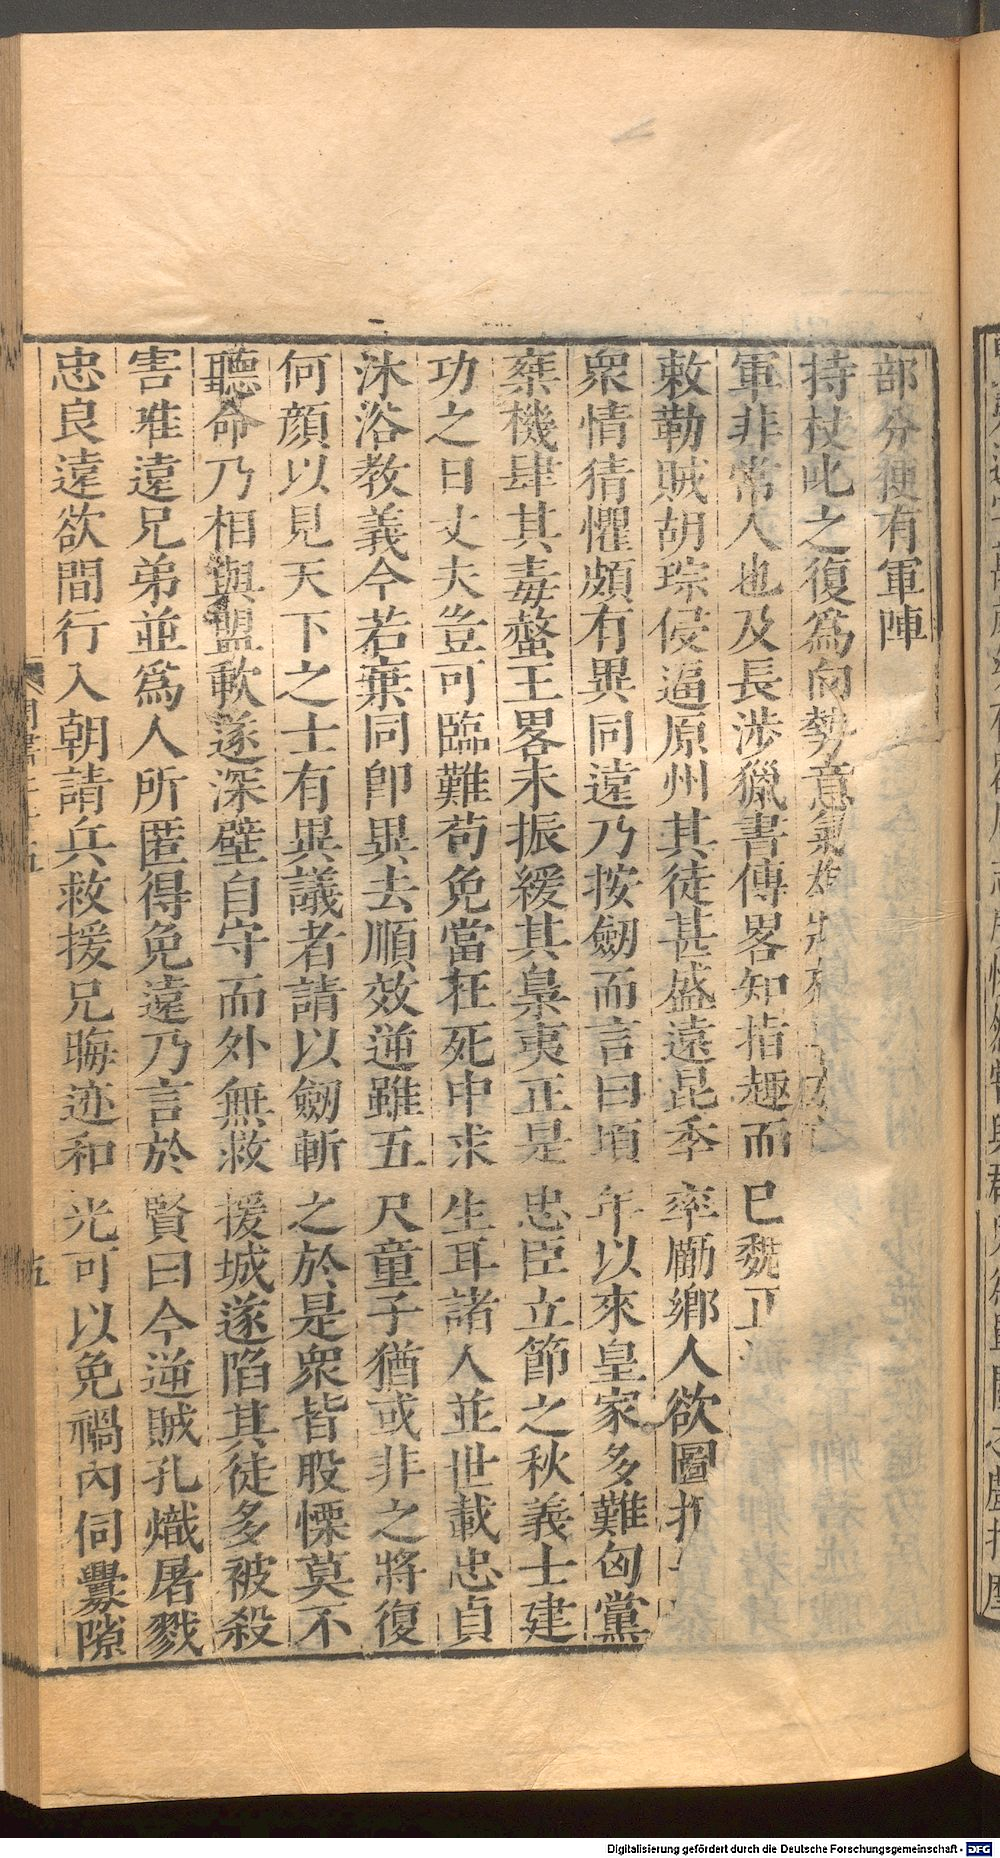 部分便有軍陣
持杖此之復爲向勢意氣雄
軍非常人也及長涉獵書傳畧知指趣而巳魏正
敕勒賊胡琮侵逼原州其徒甚盛遠昆季率勵鄉人欲圖拒
衆情猜懼頗有異同遠乃按劒而言曰頃年以來皇家多難匈黨
乗機肆其毒螫王畧未振緩其梟夷正是忠臣立節之秋義士建
功之日丈夫豈可臨難苟免當在死中求生耳諸人並世載忠貞
沐浴教義今若棄同卽異去順效逆雖五尺童子猶或非之將復
何顔以見天下之士有異議者請以劒斬之於是衆皆股慄莫不
聽命乃相與盟歃遂深壁自守而外無救援城遂陷其徒多被殺
害唯遠兄弟並爲人所匿得免遠乃言於賢曰今逆賊孔熾屠戮
忠良遠欲間行入朝請兵救援兄晦迹和光可以免禍內伺釁隙
五
Digitalisierung gefördert durch die Deutsche Forschungsgemeinschaft - DFG